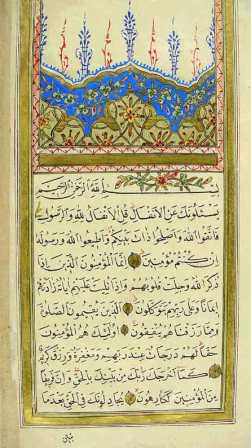 بِسْمِ اللهِ الرَّحْمٰنِ الرَّحِيمِ
يَسْئَلُونَكَ عَنِ الْاَنْفَالِ قُلِ الْاَنْفَالُ لِلّٰهِ وَالرَّسُولِ
فَاتَّقُوا اللهَ وَاَصْلِحُوا ذَاتَ بَيْنِكُمْ وَاَطِيعُوا اللهَ وَرَسُولَهُ
اِنْ كُنْتُمْ مُؤْمِنِينَ اِنَّمَا الْمُؤْمِنُونَ الَّذِينَ اِذَا
ذُكِرَ اللهُ وَجِلَتْ قُلُوبُهُمْ وَاِذَا تُلِيَتْ عَلَيْهِمْ اٰيَاتُهُ زَادَتْهُمْ
اِيمَانًا وَعَلٰى رَبِّهِمْ يَتَوَكَّلُونَ الَّذِينَ يُقِيمُونَ الصَّلٰوةَ
وَمِمَّا رَزَقْنَاهُمْ يُنْفِقُونَ اُولٰئِكَ هُمُ الْمُؤْمِنُونَ
حَقًّا لَهُمْ دَرَجَاتٌ عِنْدَ رَبِّهِمْ وَمَغْفِرَةٌ وَرِزْقٌ كَرِيمٌ
كَمَا اَخْرَجَكَ رَبُّكَ مِنْ بَيْتِكَ بِالْحَقِّ وَاِنَّ فَرِيقًا
مِنَ الْمُؤْمِنِينَ لَكَارِهُونَ يُجَادِلُونَكَ فِي الْحَقِّ بَعْدَ مَا
تبين